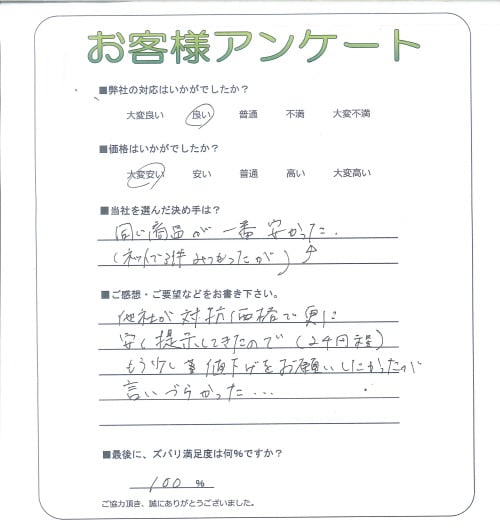 お客様アンケート
■弊社の対応はいかがでしたか？
大変良い 良い 普通 不満 大変不満
■価格はいかがでしたか？
大変安い 安い 普通 高い 大変高い
■当社を選んだ決め手は？
同じ商品が一番安かった。
(ネットで3件みつかったが)
■ご感想・ご要望などをお書き下さい。
他社が対抗価格で更に
安く提示してきたので(24円程)
もう少し値下げをお願いしたかったが
言いづらかった...
■最後に、ズバリ満足度は何%ですか？
100 %
ご協力頂き、誠にありがとうございました。